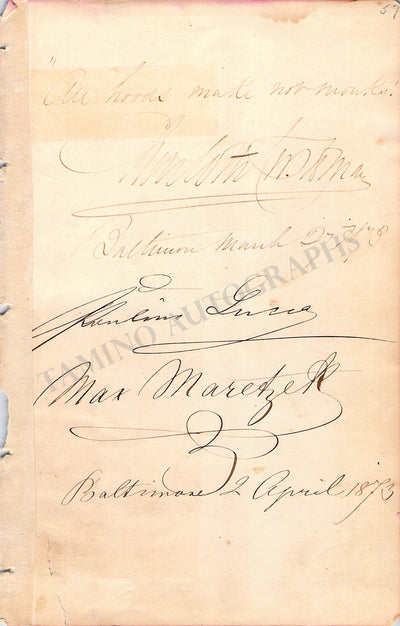 57
"All hoods make not monks."
Charlotte Cushman
Baltimore March 27th 1873
Pauline Lucca
Max Maretzek
Baltimore 2 April 1873
TAMINO AUTOGRAPHS